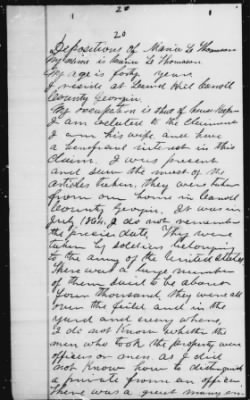 20
20
Depositions of Maria L Thomason
My name is Maria L Thomason
My age is forty years
I reside at Hill Carroll
County Georgia.
My occupation is that of house keeper
I am related to the Claimant
I am his wife and have
a beneficial interest in this
claim. I was present
and saw the most of the
articles taken, they were taken
from our home in Carroll
County Georgia. It was in
July 1864. I do not remember
the precise date, They were
taken by soldiers belonging
to the army of the United States
There was a large number
of them said to be about
four thousand, they were all
over the field and in the
yard and every where,
I did not Know whether the
men who took the property were
officers or men as I did
not Know how to distinguish
a private from an officer,
There was a great many in